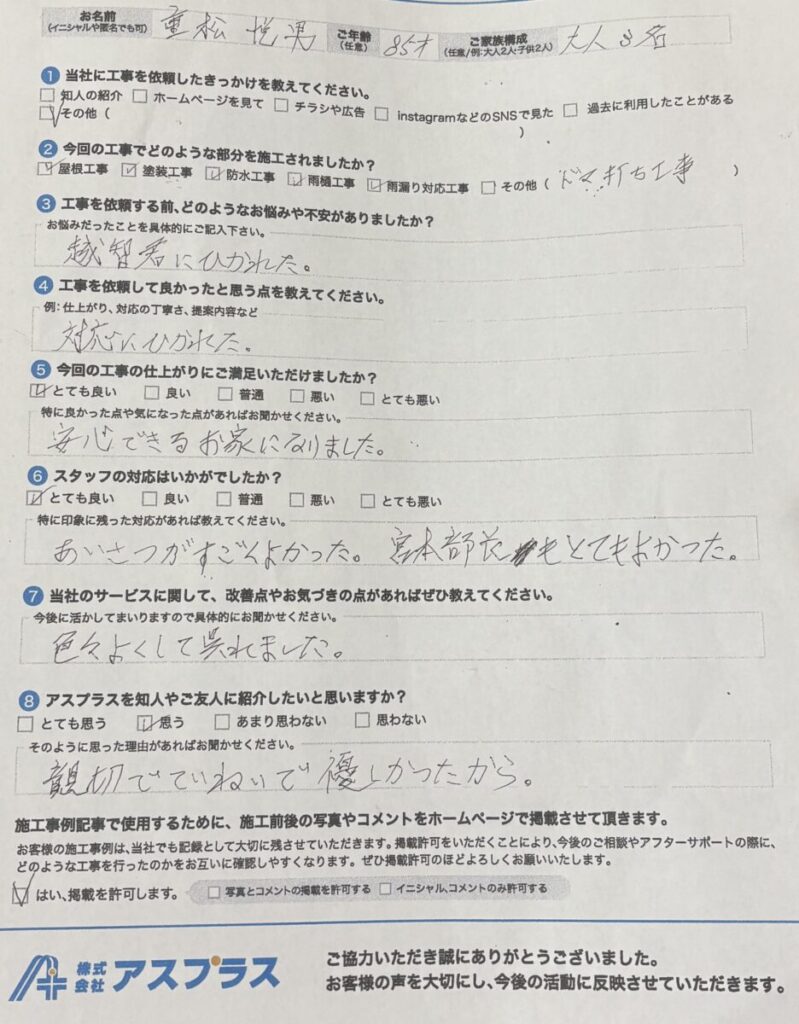 お名前 重松 悦男 ご年齢 85才 ご家族構成 大人3名
(イニシャルや匿名でも可) (任意) (任意/例:大人2人・子供2人)
1 当社に工事を依頼したきっかけを教えてください。
□ 知人の紹介 □ ホームページを見て □ チラシや広告 □ instagramなどのSNSで見た □ 過去に利用したことがある
☑ その他( )
2 今回の工事でどのような部分を施工されましたか?
☑ 屋根工事 ☑ 塗装工事 ☑ 防水工事 ☑ 雨樋工事 ☑ 雨漏り対応工事 □ その他( ドマ打ち工事 )
3 工事を依頼する前、どのようなお悩みや不安がありましたか?
お悩みだったことを具体的にご記入下さい。
越智君にひかれた。
4 工事を依頼して良かったと思う点を教えてください。
例:仕上がり、対応の丁寧さ、提案内容など
対応にひかれた。
5 今回の工事の仕上がりにご満足いただけましたか?
☑ とても良い □ 良い □ 普通 □ 悪い □ とても悪い
特に良かった点や気になった点があればお聞かせください。
安心できるお家になりました。
6 スタッフの対応はいかがでしたか?
☑ とても良い □ 良い □ 普通 □ 悪い □ とても悪い
特に印象に残った対応があれば教えてください。
あいさつがすごくよかった。 宮本部長もとてもよかった。
7 当社のサービスに関して、改善点やお気づきの点があればぜひ教えてください。
今後に活かしてまいりますので具体的にお聞かせください。
色々よくして呉れました。
8 アスプラスを知人やご友人に紹介したいと思いますか?
□ とても思う ☑ 思う □ あまり思わない □ 思わない
そのように思った理由があればお聞かせください。
親切でていねいで優しかったから。
施工事例記事で使用するために、施工前後の写真やコメントをホームページで掲載させて頂きます。
お客様の施工事例は、当社でも記録として大切に残させていただきます。掲載許可をいただくことにより、今後のご相談やアフターサポートの際に、
どのような工事を行ったのかをお互いに確認しやすくなります。ぜひ掲載許可のほどよろしくお願いいたします。
☑ はい、掲載を許可します。 □ 写真とコメントの掲載を許可する □ イニシャル、コメントのみ許可する
株式会社 アスプラス
ご協力いただき誠にありがとうございました。
お客様の声を大切にし、今後の活動に反映させていただきます。